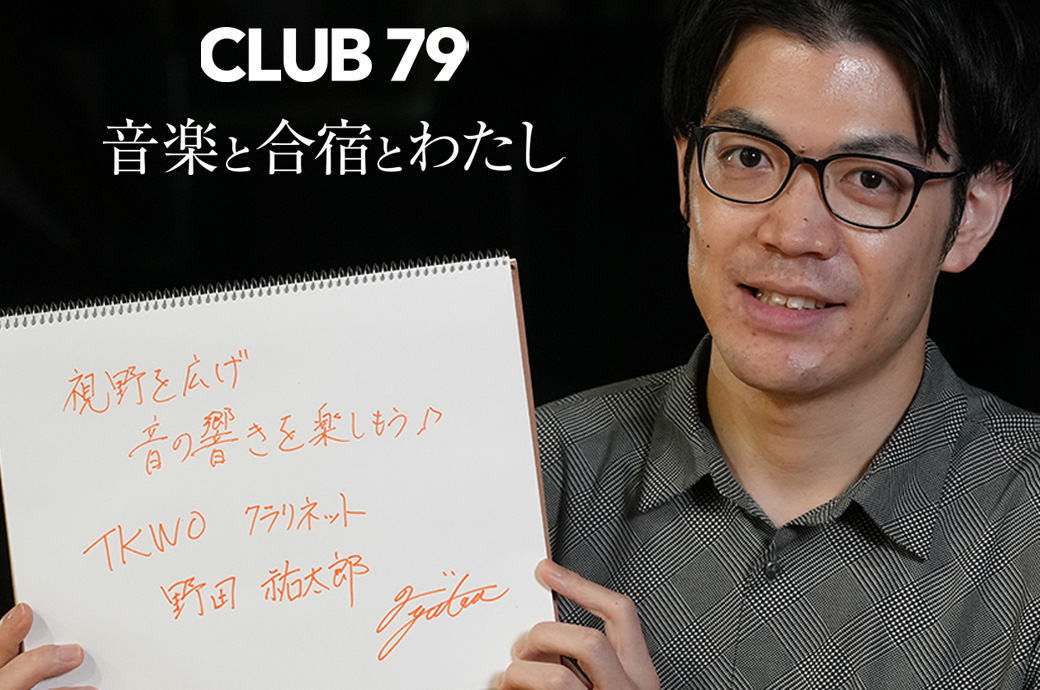 CLUB 79
音楽と合宿とわたし
視野を広げ
音の響きを楽しもう♪
TKWO クラリネット
野田 祐太郎